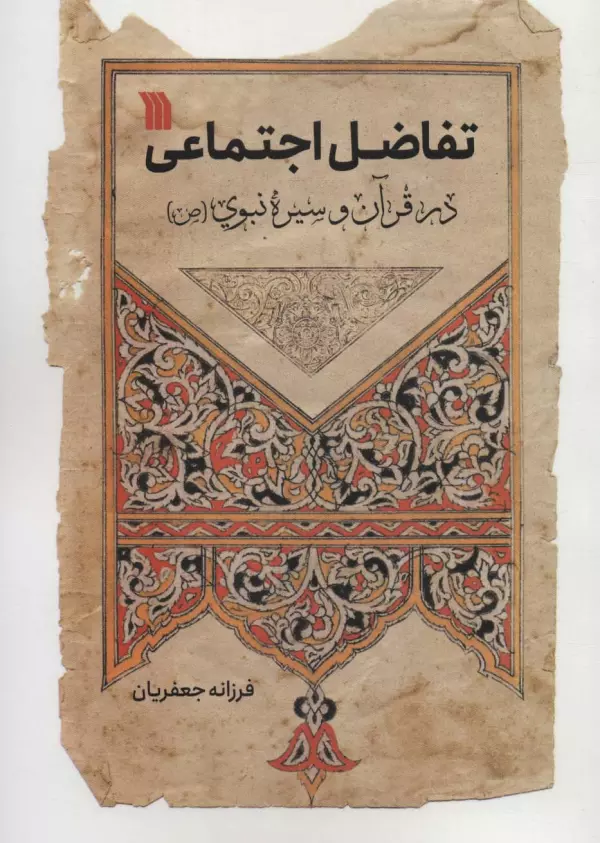 تفاضل اجتماعی
در قرآن و سیرهٔ نبوي (ص)
فرزانه جعفریان